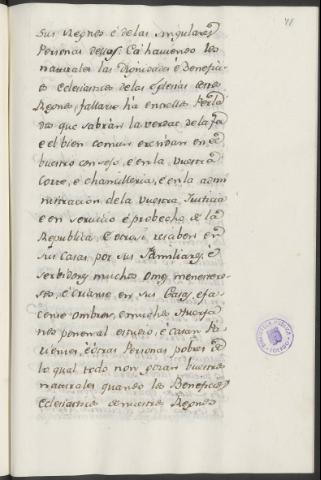 sus Regnos é de las singulares
Personas dellos. Ca haviendo los
naturales las Dignidades é Benefici-
os Eclesiasticos de las Iglesias destos
Regnos, fallarse ha en ellos Perla-
dos que sabràn la verdad de la fee
e el bien comun é residan en el
vuestro consejo, é en la vuestra
Corte, é chancilleria, é en la admi-
nistracion de la vuestra Justicia
e en servicio é probecho de la
Republica. E otrosi reciben en
sus Casas por sus Familiares, é
serbidores muchos Omes menestero-
sos, é crianse en sus Casas, e fa-
cense ombres, e muchos Huerfa-
nos ponen al estudio, é casan Pa-
rientes, é otras Personas pobres de
lo qual todo non gozan vuestros
naturales quando los Beneficios
Eclesiasticos de vuestros Regnos